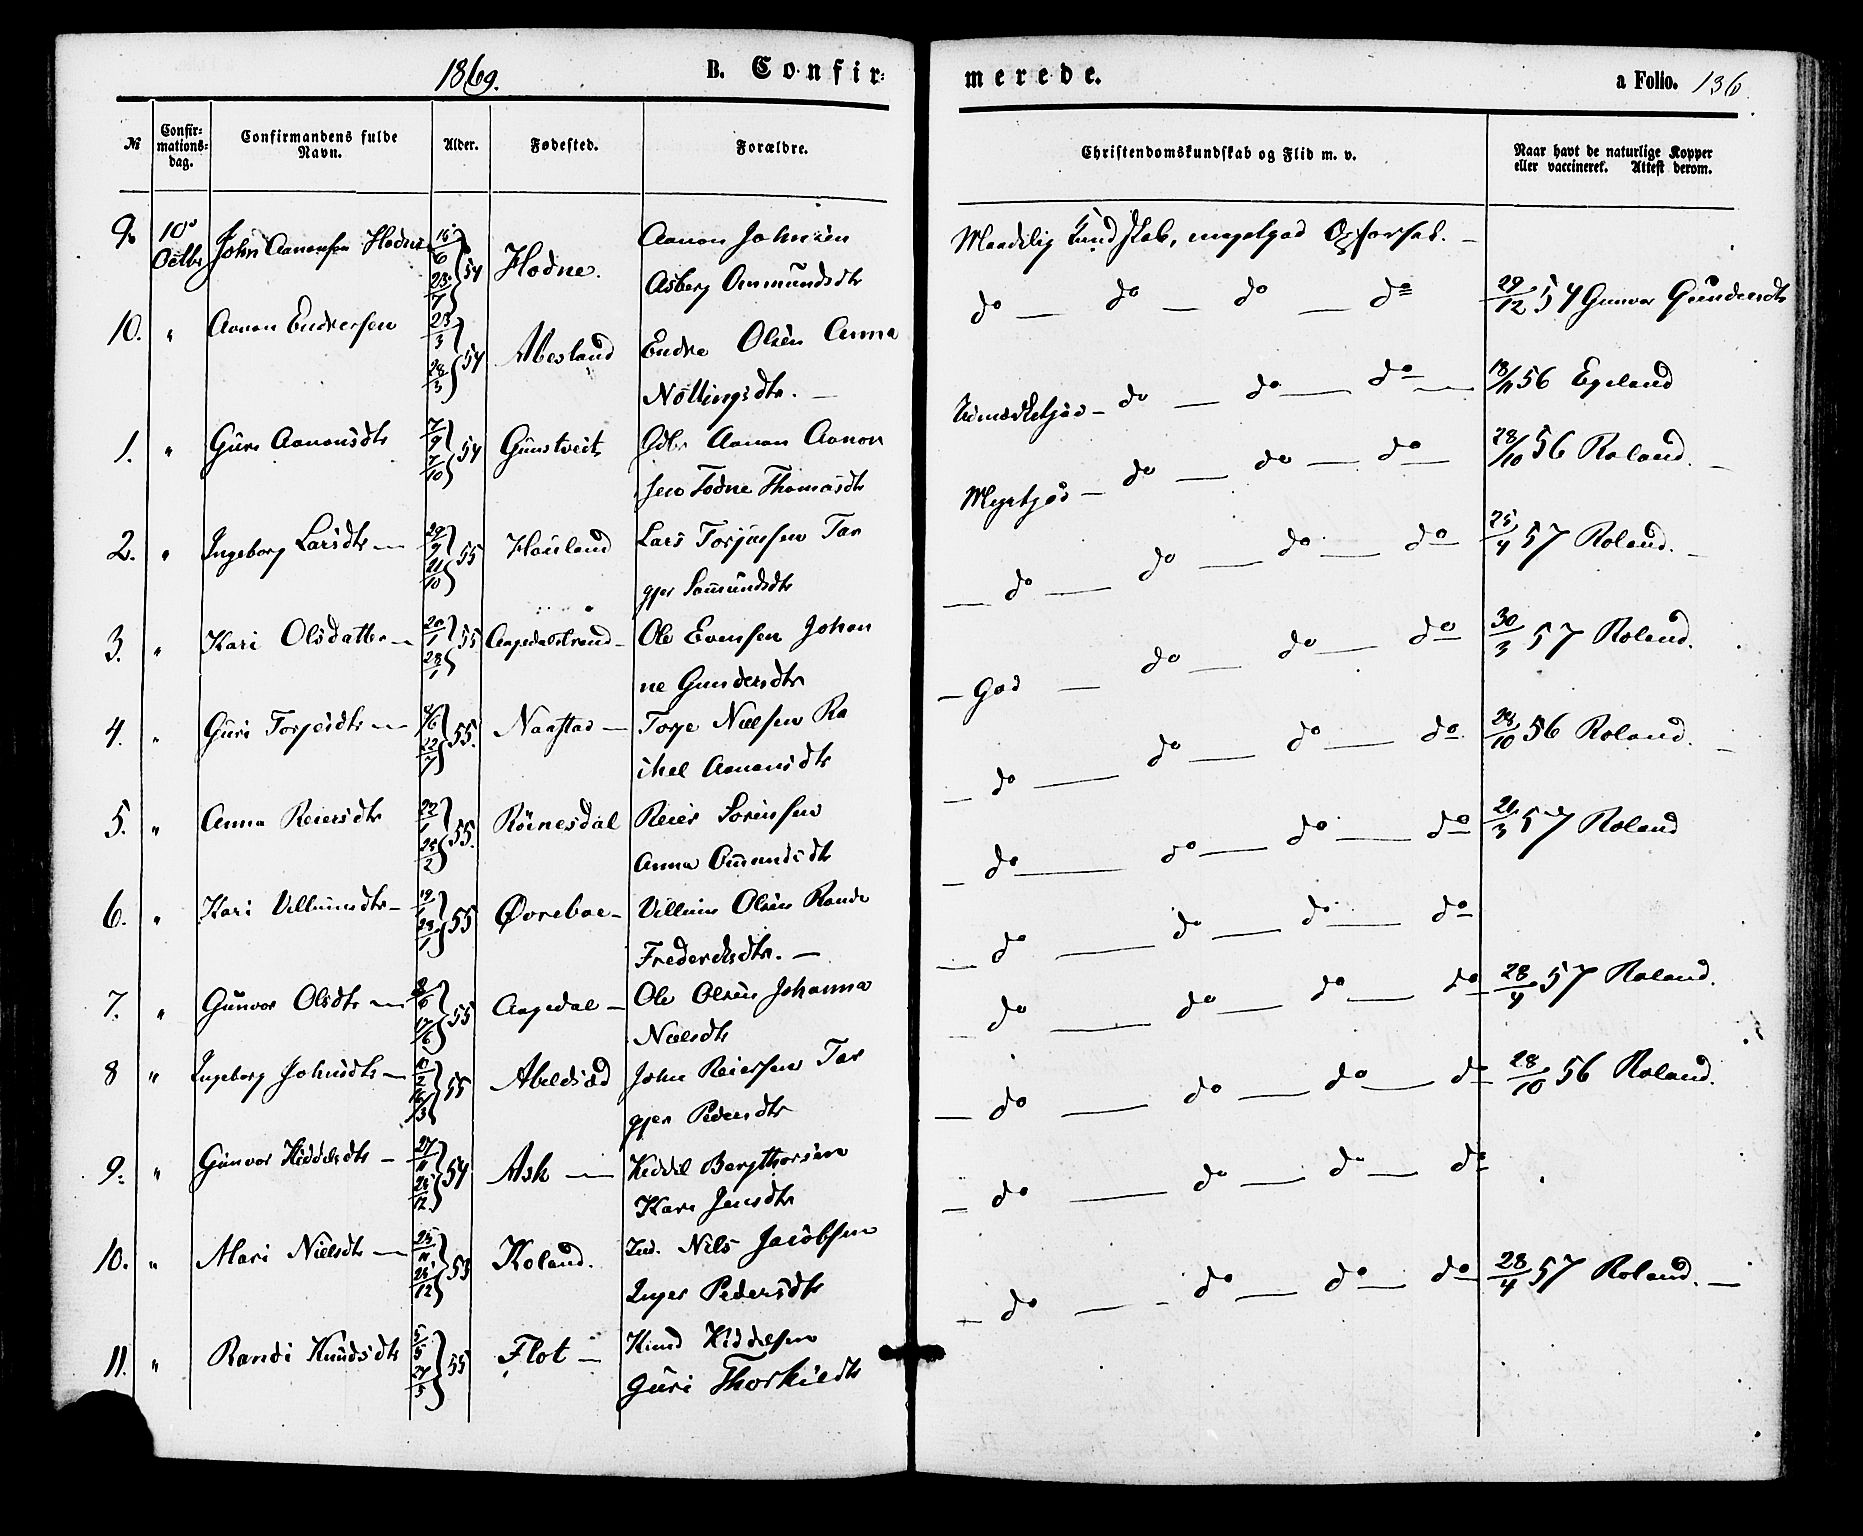 1869. B. Confir=
merede. a Folio. 136
№ Confir=mations=dag. Confirmandens fulde Navn. Alder. Fødested. Forældre.
Christendomskundskab og Flid m. v. Naar havt de naturlige Kopper eller vaccineret. Attest derom.
9. 10de Octbr John Aanonsen Hodne 54 Hodne. Aanon Johnsen
Asberg Ommundsdtr
Maadelig Kundskab, meget god Opførsel. —
10. " Aanon Endresen 23/3 28/3 54 Abesland Endre Olsen Anna
Nottingsdtr. —
do — do — do — do 29/12 54 Gunvor Gundersdt
1. " Guro Aanonsdtr 7/9 7/10 54 Gunstveit Aanon Aanon
sen Todne Thomasdtr
do — do — do 18/11 56 Egeland
2. " Ingeborg Larsdtr — 29/9 21/10 55 Houland Lars Torjusen Tar
gjer Samundsdtr
do — do — do 28/10 56 Roland. —
3. " Kari Olsdatter — 20/1 28/1 55 Aagedalstrand — Ole Evensen Johan
ne Gundersdtr
— do — do — do — do 25/4 57 Roland. —
4. " Guri Torjesdtr — 4/6 22/7 55. Naastad — Torje Nielsen Ra
ikel Aanonsdtr
— God — do — do — do 30/3 57 Roland.
5. " Anna Reiersdtr 22/1 24/2 55. Röinesdal Reier Sörensen
Anna Omundsdt
— do — do — do — do 28/10 56 Roland. —
6. " Kari Villumsdtr — 19/1 28/1 55 Øvrebøe — Villum Olsen Rande
Frederiksdtr. —
— do — do — do — do 21/3 57 Roland
7. " Gunvor Olsdtr — 8/6 17/6 55 Aagedal — Ole Olsen Johanna
Nielsdtr
— do — do — do — do
8 " Ingeborg Johnsdtr — 55 Abelsæd John Reiersen Tar
gjer Pedersdtr
— do — do — do — do 28/4 57 Roland.
9. " Gunvor Kiddelsdtr — 27/11 26/12 54 Ask — Keddel Bergthorsen
Kari Jensdtr
— do — do — do — do 28/10 56 Roland.
10. " Mari Nielsdtr — 25/11 26/12 53 Roland. Ind. Nils Jacobsen
Inger Pedersdtr
— do — do — do — do
11. " Randi Knudsdtr 5/5 27/5 55 Flot — Knud Kiddelsen
Guri Thorkildt
— do — do — do — do 28/4 57 Roland. —